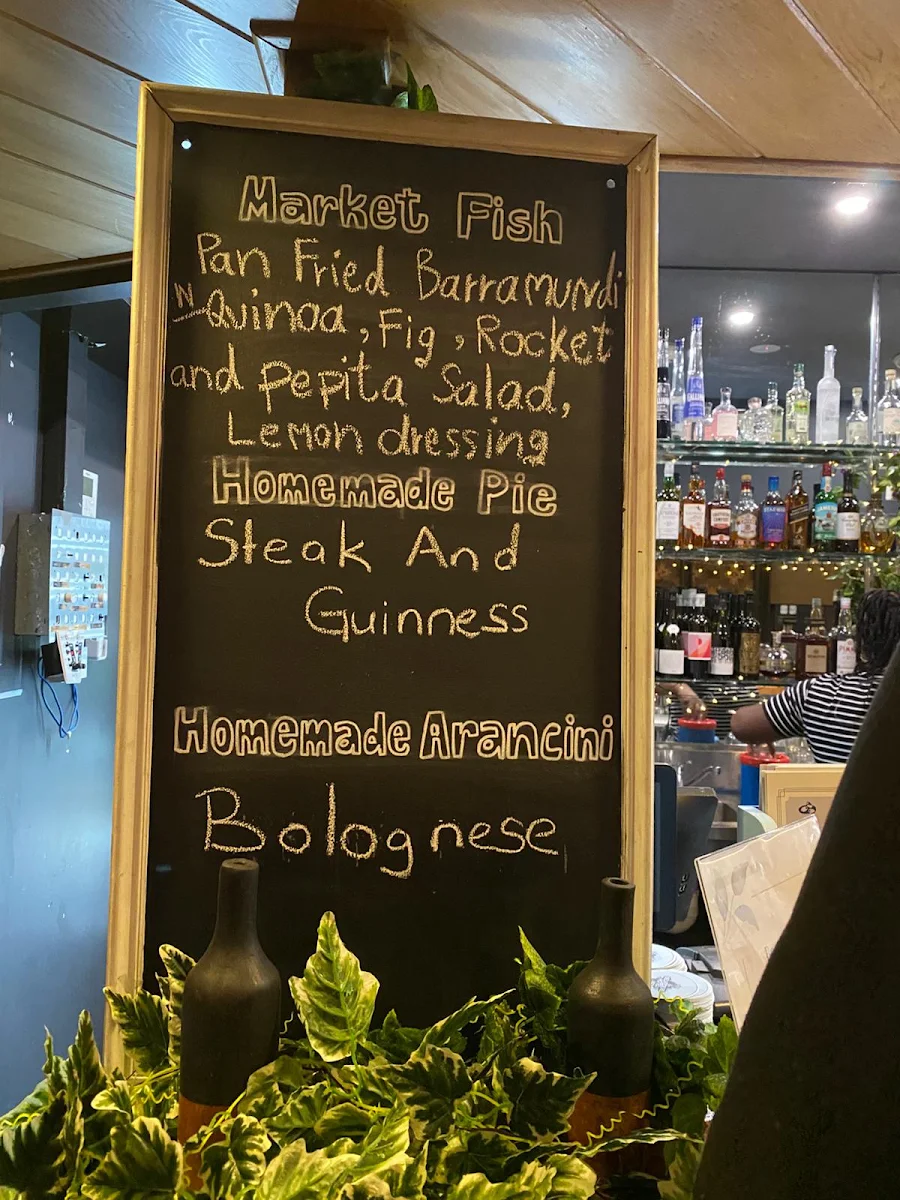 Market Fish
Pan Fried Barramundi
N Quinoa, Fig, Rocket
and Pepita Salad,
Lemon dressing
Homemade Pie
Steak And
Guinness
Homemade Arancini
Bolognese